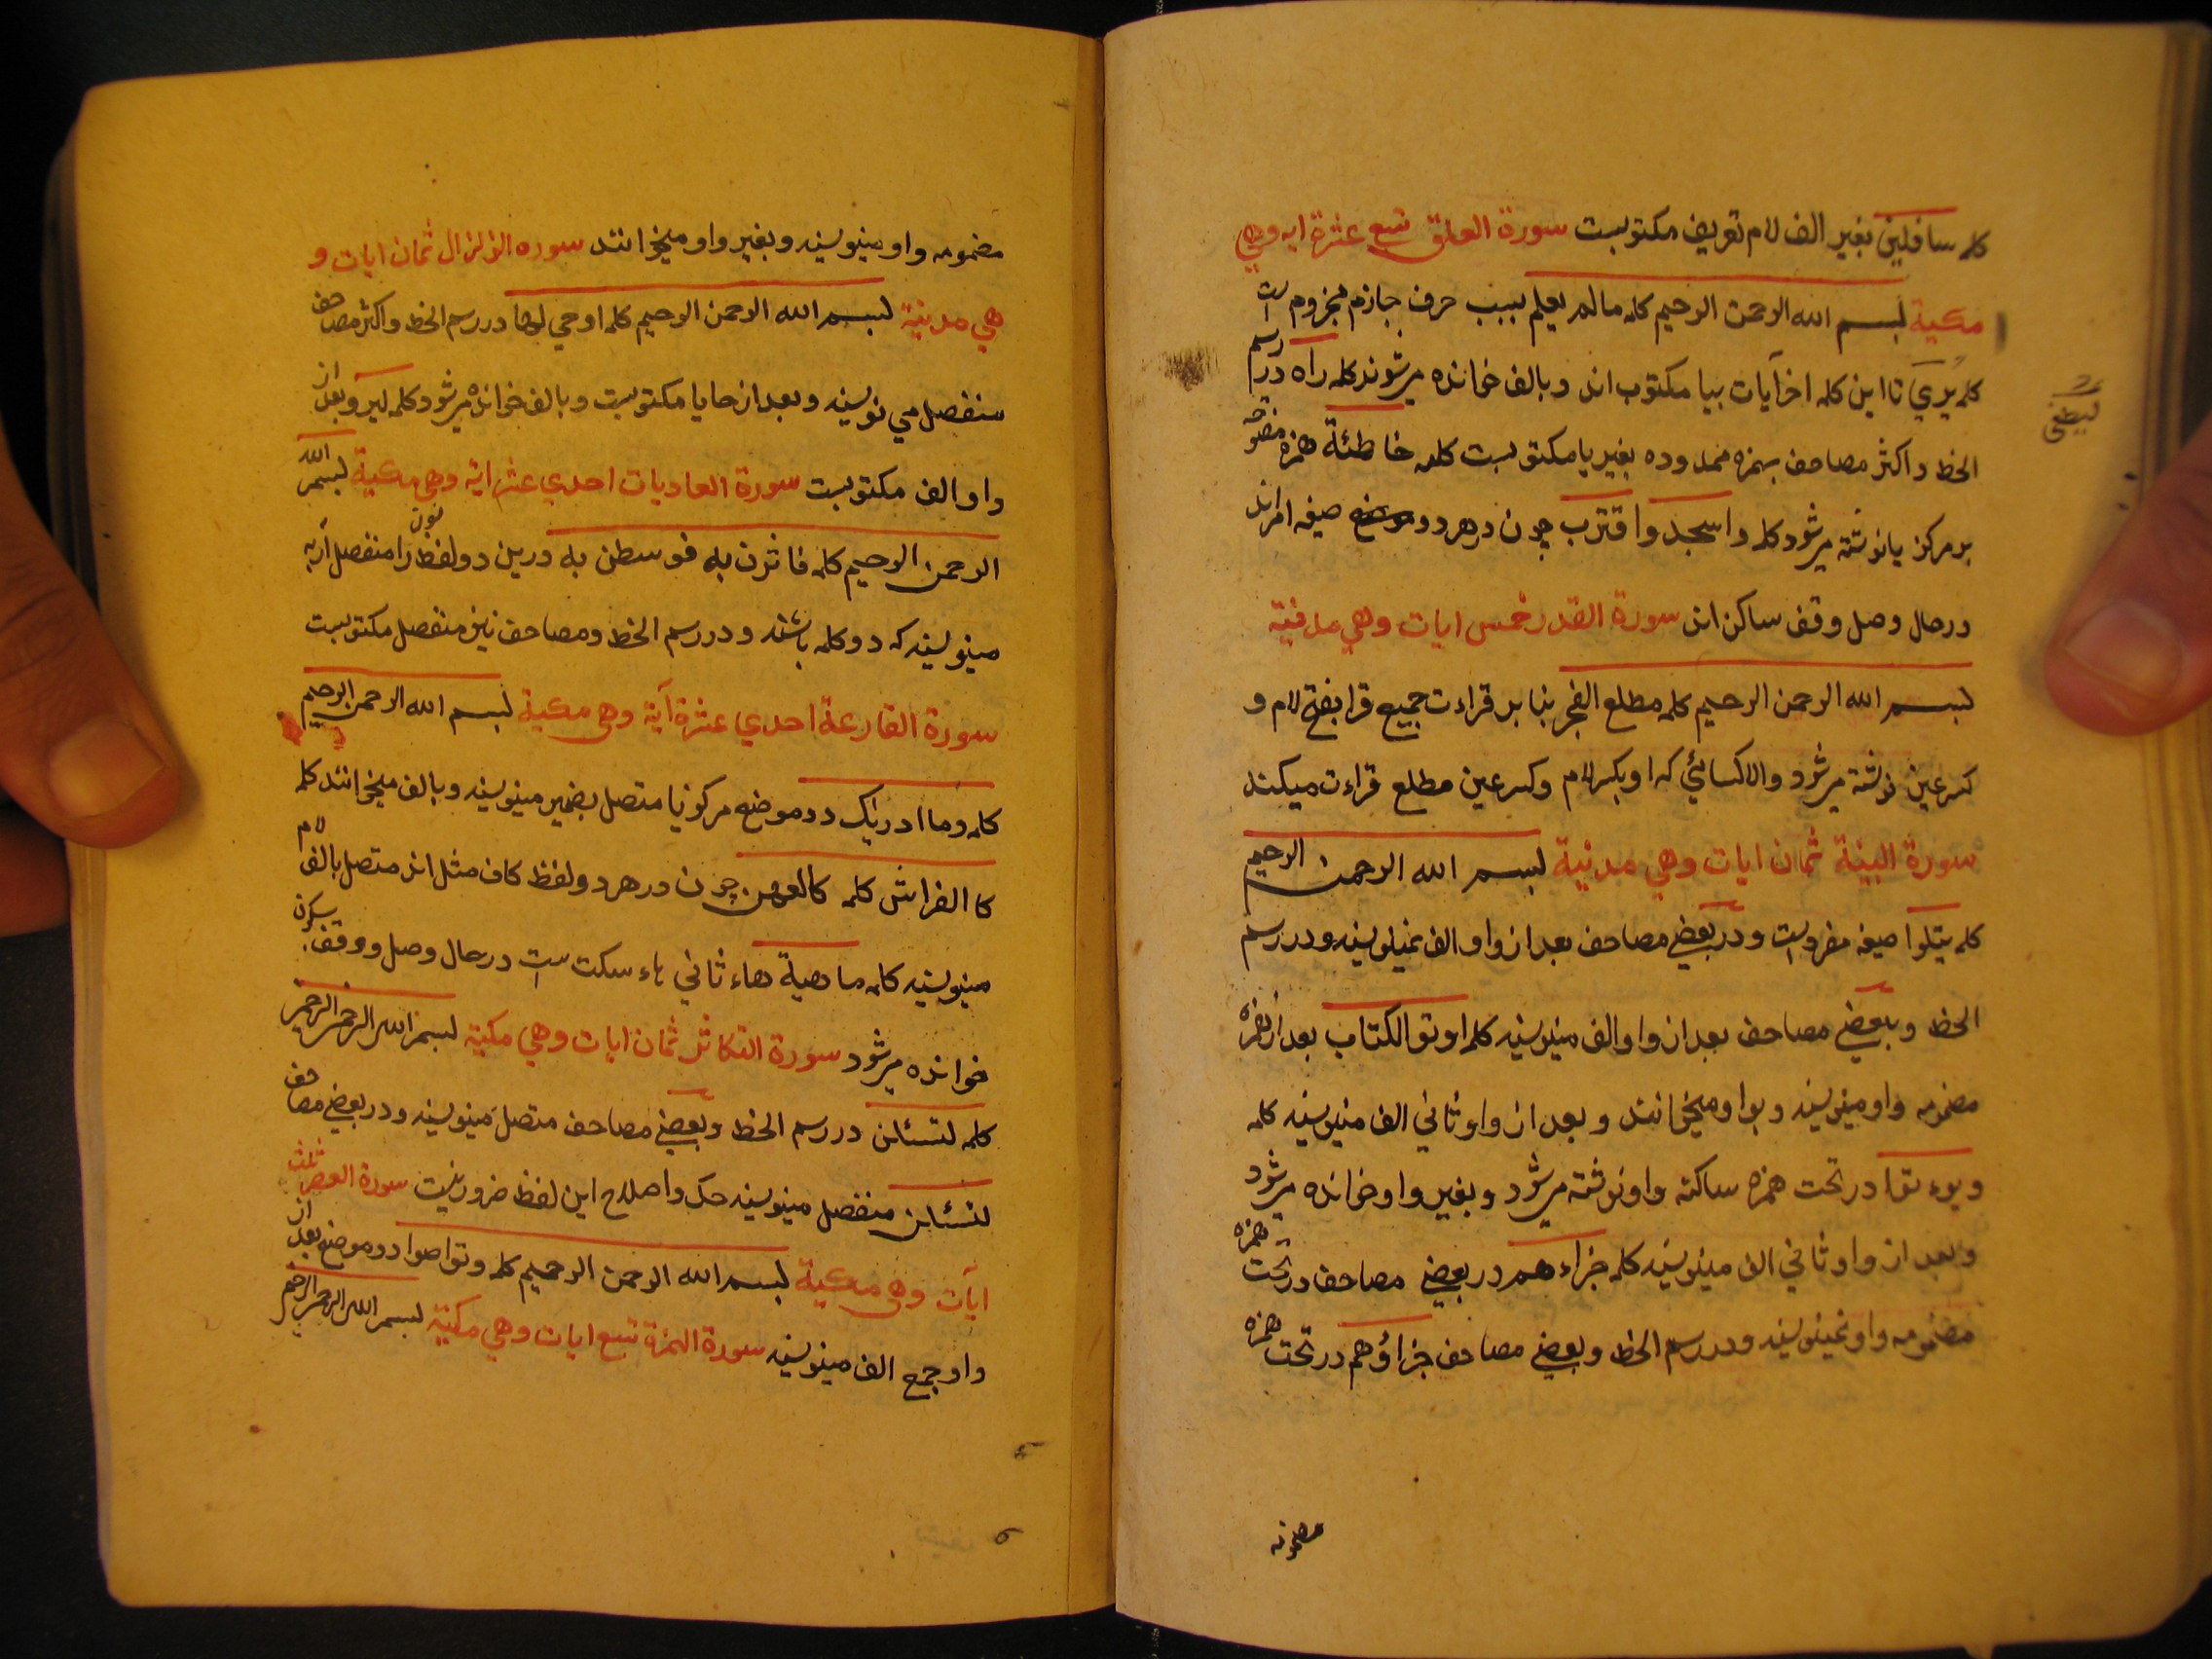 كلمه سافلين بغير الف لام تعريف مكتوبست سورة العلق تسع عشرة ايه وهي
مكية بسم الله الرحمن الرحيم كلمه مالم يعلم بسبب حرف جازم مجزوم است
كلمه يري تا اين كلمه اخر آيات بيا مكتوب اند وبالف خوانده ميشوند كلمه راه در رسم
الخط و اكثر مصاحف بهمزه ممدوده بغير يا مكتوبست كلمه خاطئة همزه مفتوحه
بر مركز يا نوشته ميشود كلمه واسجد واقترب چون در هر دو موضع صيغه امر اند
در حال وصل وقف ساكن اند سورة القدر خمس ايات وهي مدنية
بسم الله الرحمن الرحيم كلمه مطلع الفجر بنا بر قراءت جميع قرا بفتح لام و
كسر عين نوشته ميشود والا كسائي كه او بكسر لام وكسر عين مطلع قراءت ميكند
سورة البينة ثمان ايات وهي مدنية بسم الله الرحمن الرحيم
كلمه يتلوا صيغه مفرد است و در بعضي مصاحف بعد از واو الف نمينويسند و در رسم
الخط و بعضي مصاحف بعد از واو الف مينويسند كلمه اوتوا الكتاب بعد از همزه
مضمومه واو مينويسند و بواو ميخوانند و بعد از واو ثاني الف مينويسند كلمه
ويوءتوا در تحت همزه ساكنه واو نوشته ميشود و بغير واو خوانده ميشود
و بعد از واو ثاني الف مينويسند كلمه جزاءهم در بعضي مصاحف در تحت همزه
مضمومه واو نمينويسند و در رسم الخط و بعضي مصاحف جزاؤهم در تحت همزه
مضمومه
مضمومه واو مينويسند و بغير واو ميخوانند سوره الزلزال ثمان ايات و
هي مدنية بسم الله الرحمن الرحيم كلمه اوحي لها در رسم الخط و اكثر مصاحف
منفصل مي نويسند و بعد از حا يا مكتوبست وبالف خوانده ميشود كلمه ليروا بعد از
واو الف مكتوبست سورة العاديات احدي عشر اية وهي مكية بسم الله
الرحمن الرحيم كلمه فاثرن به فوسطن به درين دو لفظ نون را منفصل از به
مينويسند كه دو كلمه باشند و در رسم الخط و مصاحف نيز منفصل مكتوبست
سورة القارعة احدي عشرة آية وهي مكية بسم الله الرحمن الرحيم
كلمه وما ادريك دو موضع مركز يا متصل بضمير مينويسند و بالف ميخوانند كلمه
كا الفراش كلمه كالعهن چون در هر دو لفظ كاف مثل اند متصل بالف لام
مينويسند كلمه ماهية هاء ثاني هاء سكت است در حال وصل و وقف بسكون
خوانده ميشود سورة التكاثر ثمان ايات وهي مكية بسم الله الرحمن الرحيم
كلمه لتسئلن در رسم الخط و بعضي مصاحف متصل مينويسند و در بعضي مصاحف
لتسئلن منفصل مينويسند حك و اصلاح اين لفظ ضرور نيست سورة العصر ثلث
آيات وهي مكية بسم الله الرحمن الرحيم كلمه وتواصوا دو موضع بعد از
واو جمع الف مينويسند سورة الهمزة تسع ايات وهي مكية بسم الله الرحمن الرحيم